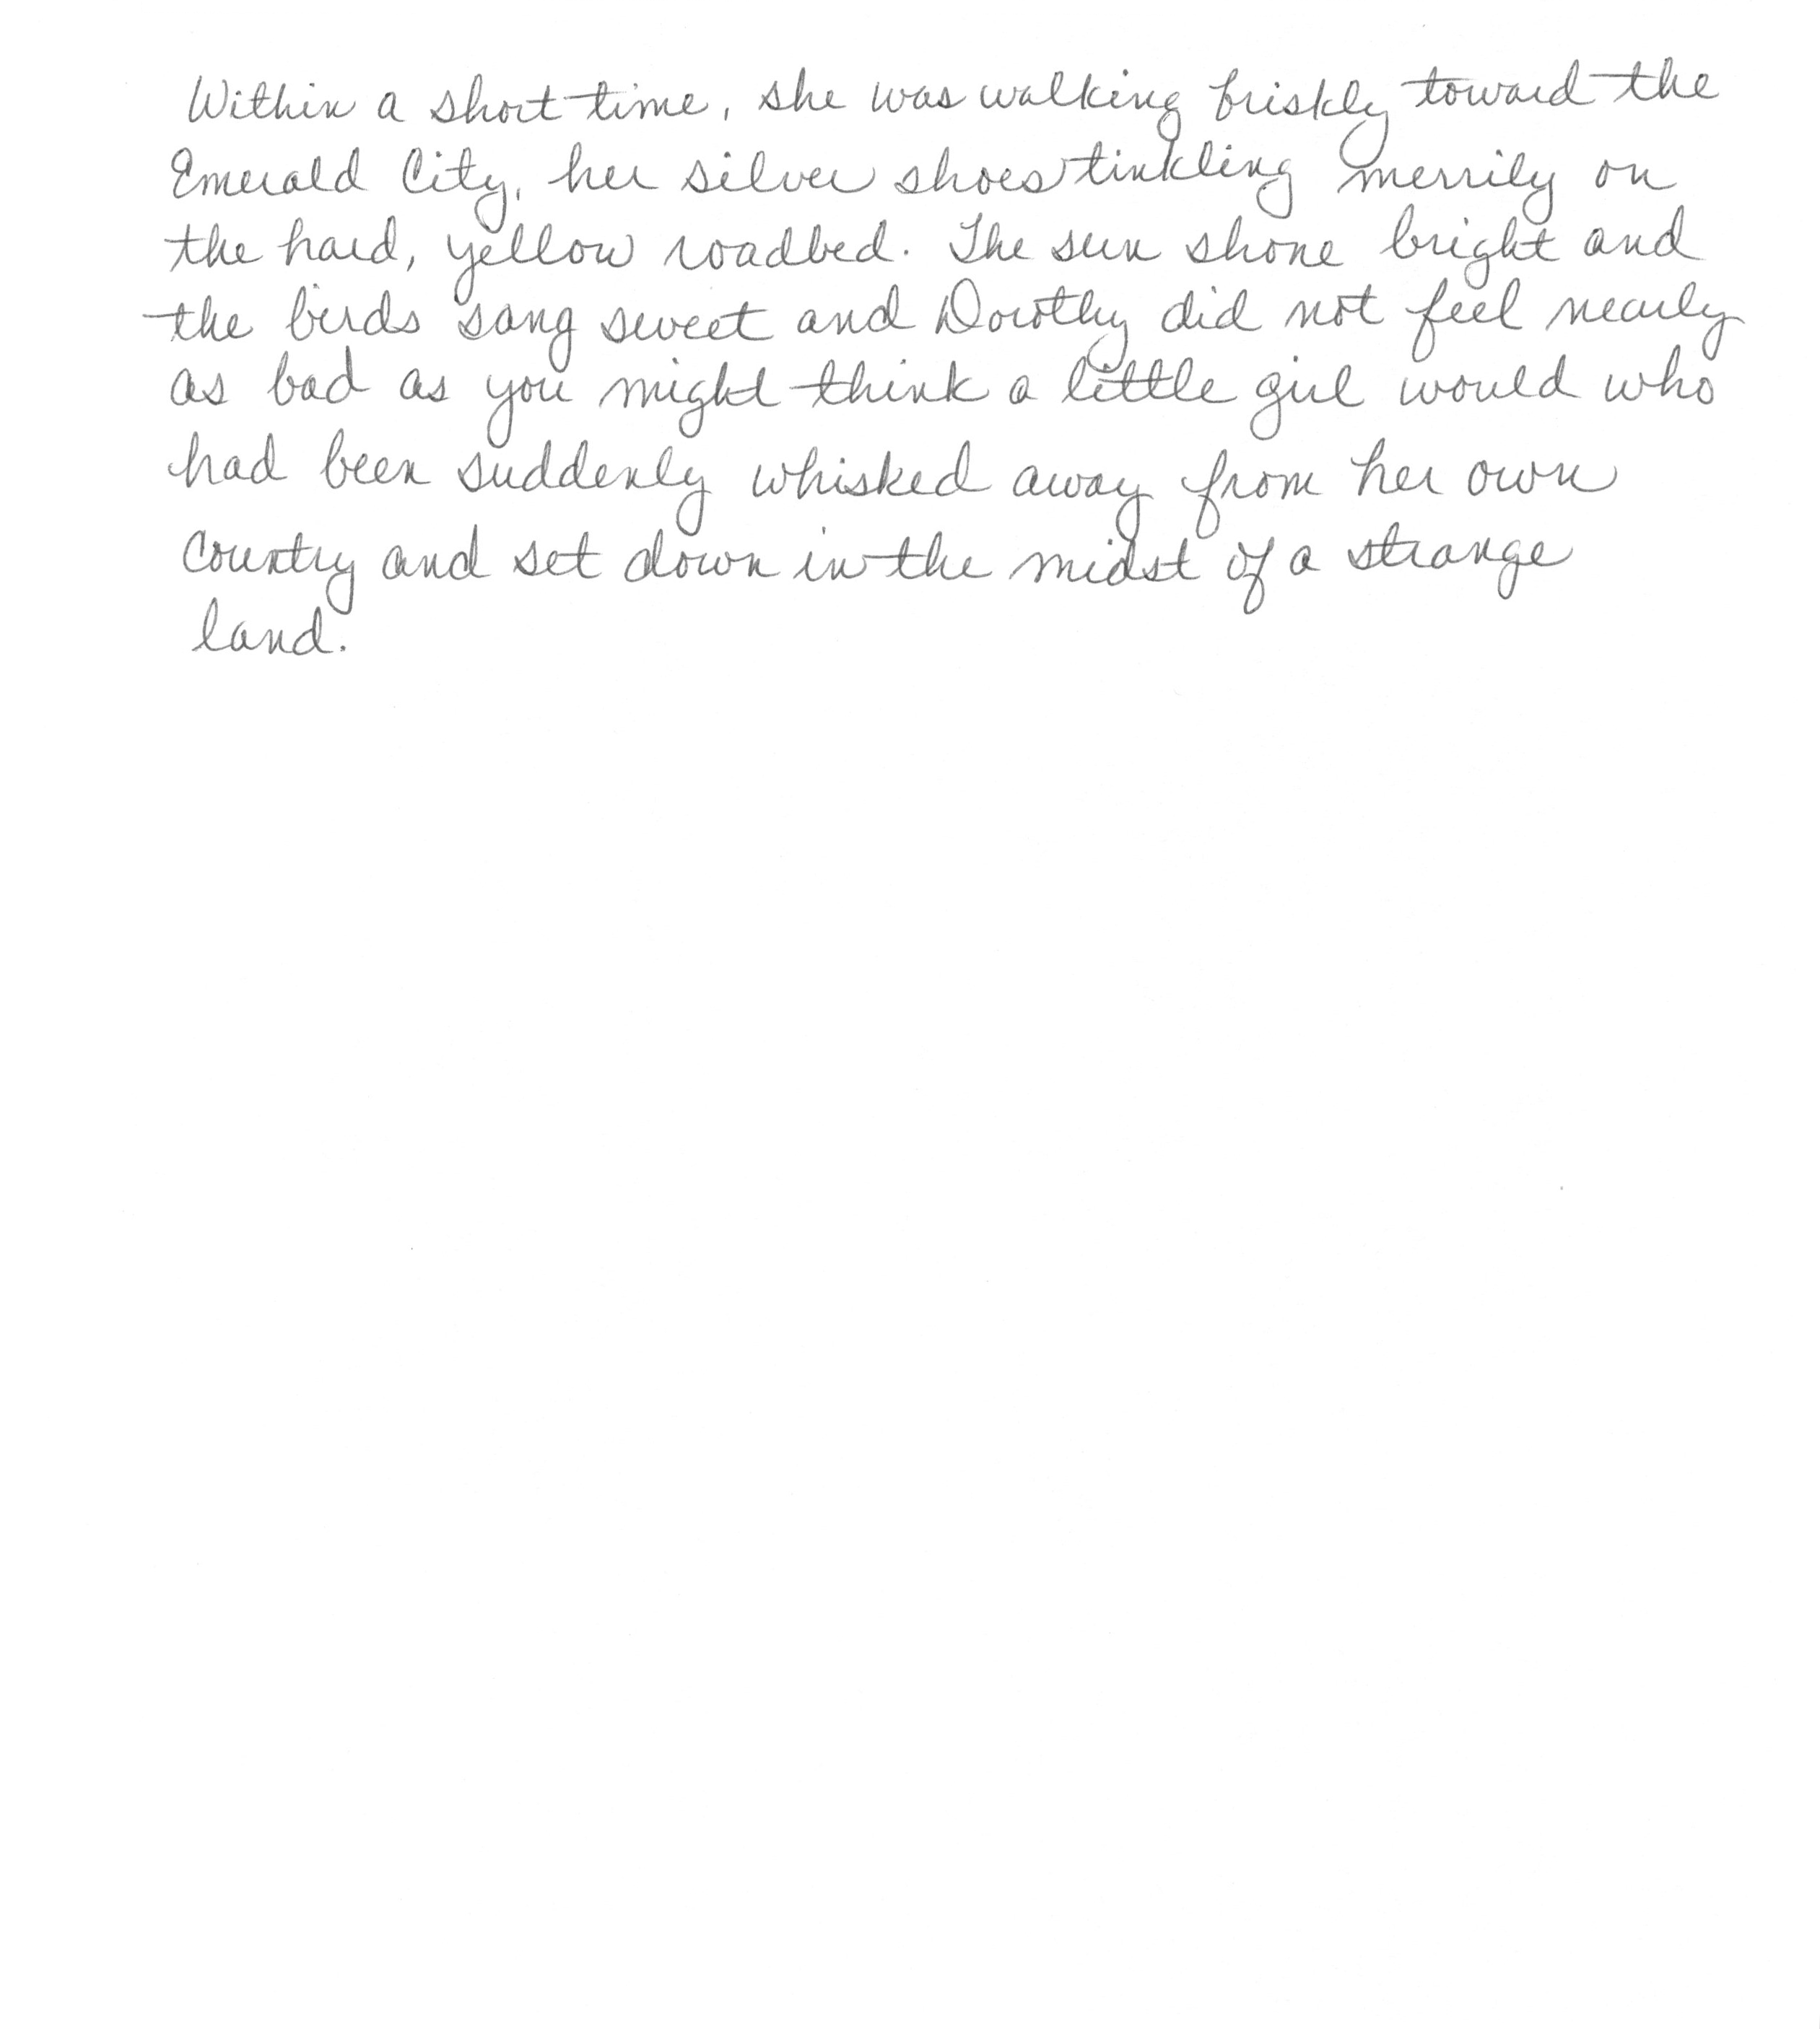 Within a short time, she was walking briskly toward the
Emerald City, her silver shoes tinkling merrily on
the hard, yellow roadbed. The sun shone bright and
the birds sang sweet and Dorothy did not feel nearly
as bad as you might think a little girl would who
had been suddenly whisked away from her own
country and set down in the midst of a strange
land.